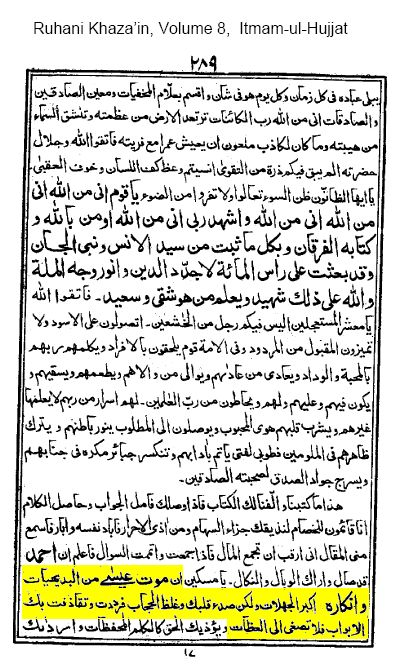 Ruhani Khaza'in, Volume 8, Itmam-ul-Hujjat
٢٨٩
يبلى عباده فى كل زمان وكل يوم هو فى شان واقسم بعلّام المخفيات ومعين الصادقين
والصادقات انى من الله رب الكائنات ترتعد الارض من عظمته وتنشق السماء
من هيبته وما كان لكاذب ملعون ان يعيش عمرا مع فريته فاتقوا الله وجلال
حضرته الم يبق فيكم ذرة من التقوى انسيتم وعظ كف اللسان وخوف العقبى۔
يا ايها الظانّون ظن السوء تعالوا ولا تفروا من الضوء يا قوم انى من الله انى
من الله انى من الله واشهد ربى انى من الله اومن بالله و
كتابه الفرقان وبكل ما ثبت من سيد الانس ونبى الجان
وقد بعثت على رأس المائة لاجدّد الدين وانور وجه الملة
والله على ذلك شهيد ويعلم من هو شقى وسعيد۔ فاتقوا الله
يا معشر المستعجلين اليس فيكم رجل من الخاشعين۔ اتصولون على الاسود ولا
تميزون المقبول من المردود وفى الامة قوم يلحقون بالافراد ويكلمهم ربهم
بالمحبة والوداد ويعادى من عاداهم ويوالى من والاهم ويطعمهم ويسقيهم و
يكون فيهم وعليهم ولهم ويحاطون من ربّ العلمين۔ لهم اسرار من ربهم لا يعلمها
غيرهم ويشرب قلبهم هوى المحبوب ويوصلون الى المطلوب ينور باطنهم و يترك
ظاهرهم فى الملومين فطوبى لفتى ياتم بادابهم وتنكسر جبائر مكره فى جنابهم
ويسرج جواد الصدق لصحبة الصادقين۔
هذا ما كتبنا والّفنا لك الكتاب فاذا وصلك فامل الجواب وحاصل الكلام
انا قائمون للخصام لنذيقك جزاء السهام ومن اذى الاحرار فاباد نفسه وابار فاسمع
منى المقال انى ارقب ان تجمع المال فاذا جمعت واتممت السوال فاعلم ان احمد
قد صال واراك الوبال والنكال۔ يا مسكين ان موت عيسى من البديهيات
وانكاره اكبر الجهلات ولكن صدء قلبك وغلظ الحجاب فرددت وتقاذفت بك
الابواب فلا تصغى الى العظات ويؤذيك الحق كالكلم المحفظات و
١٧